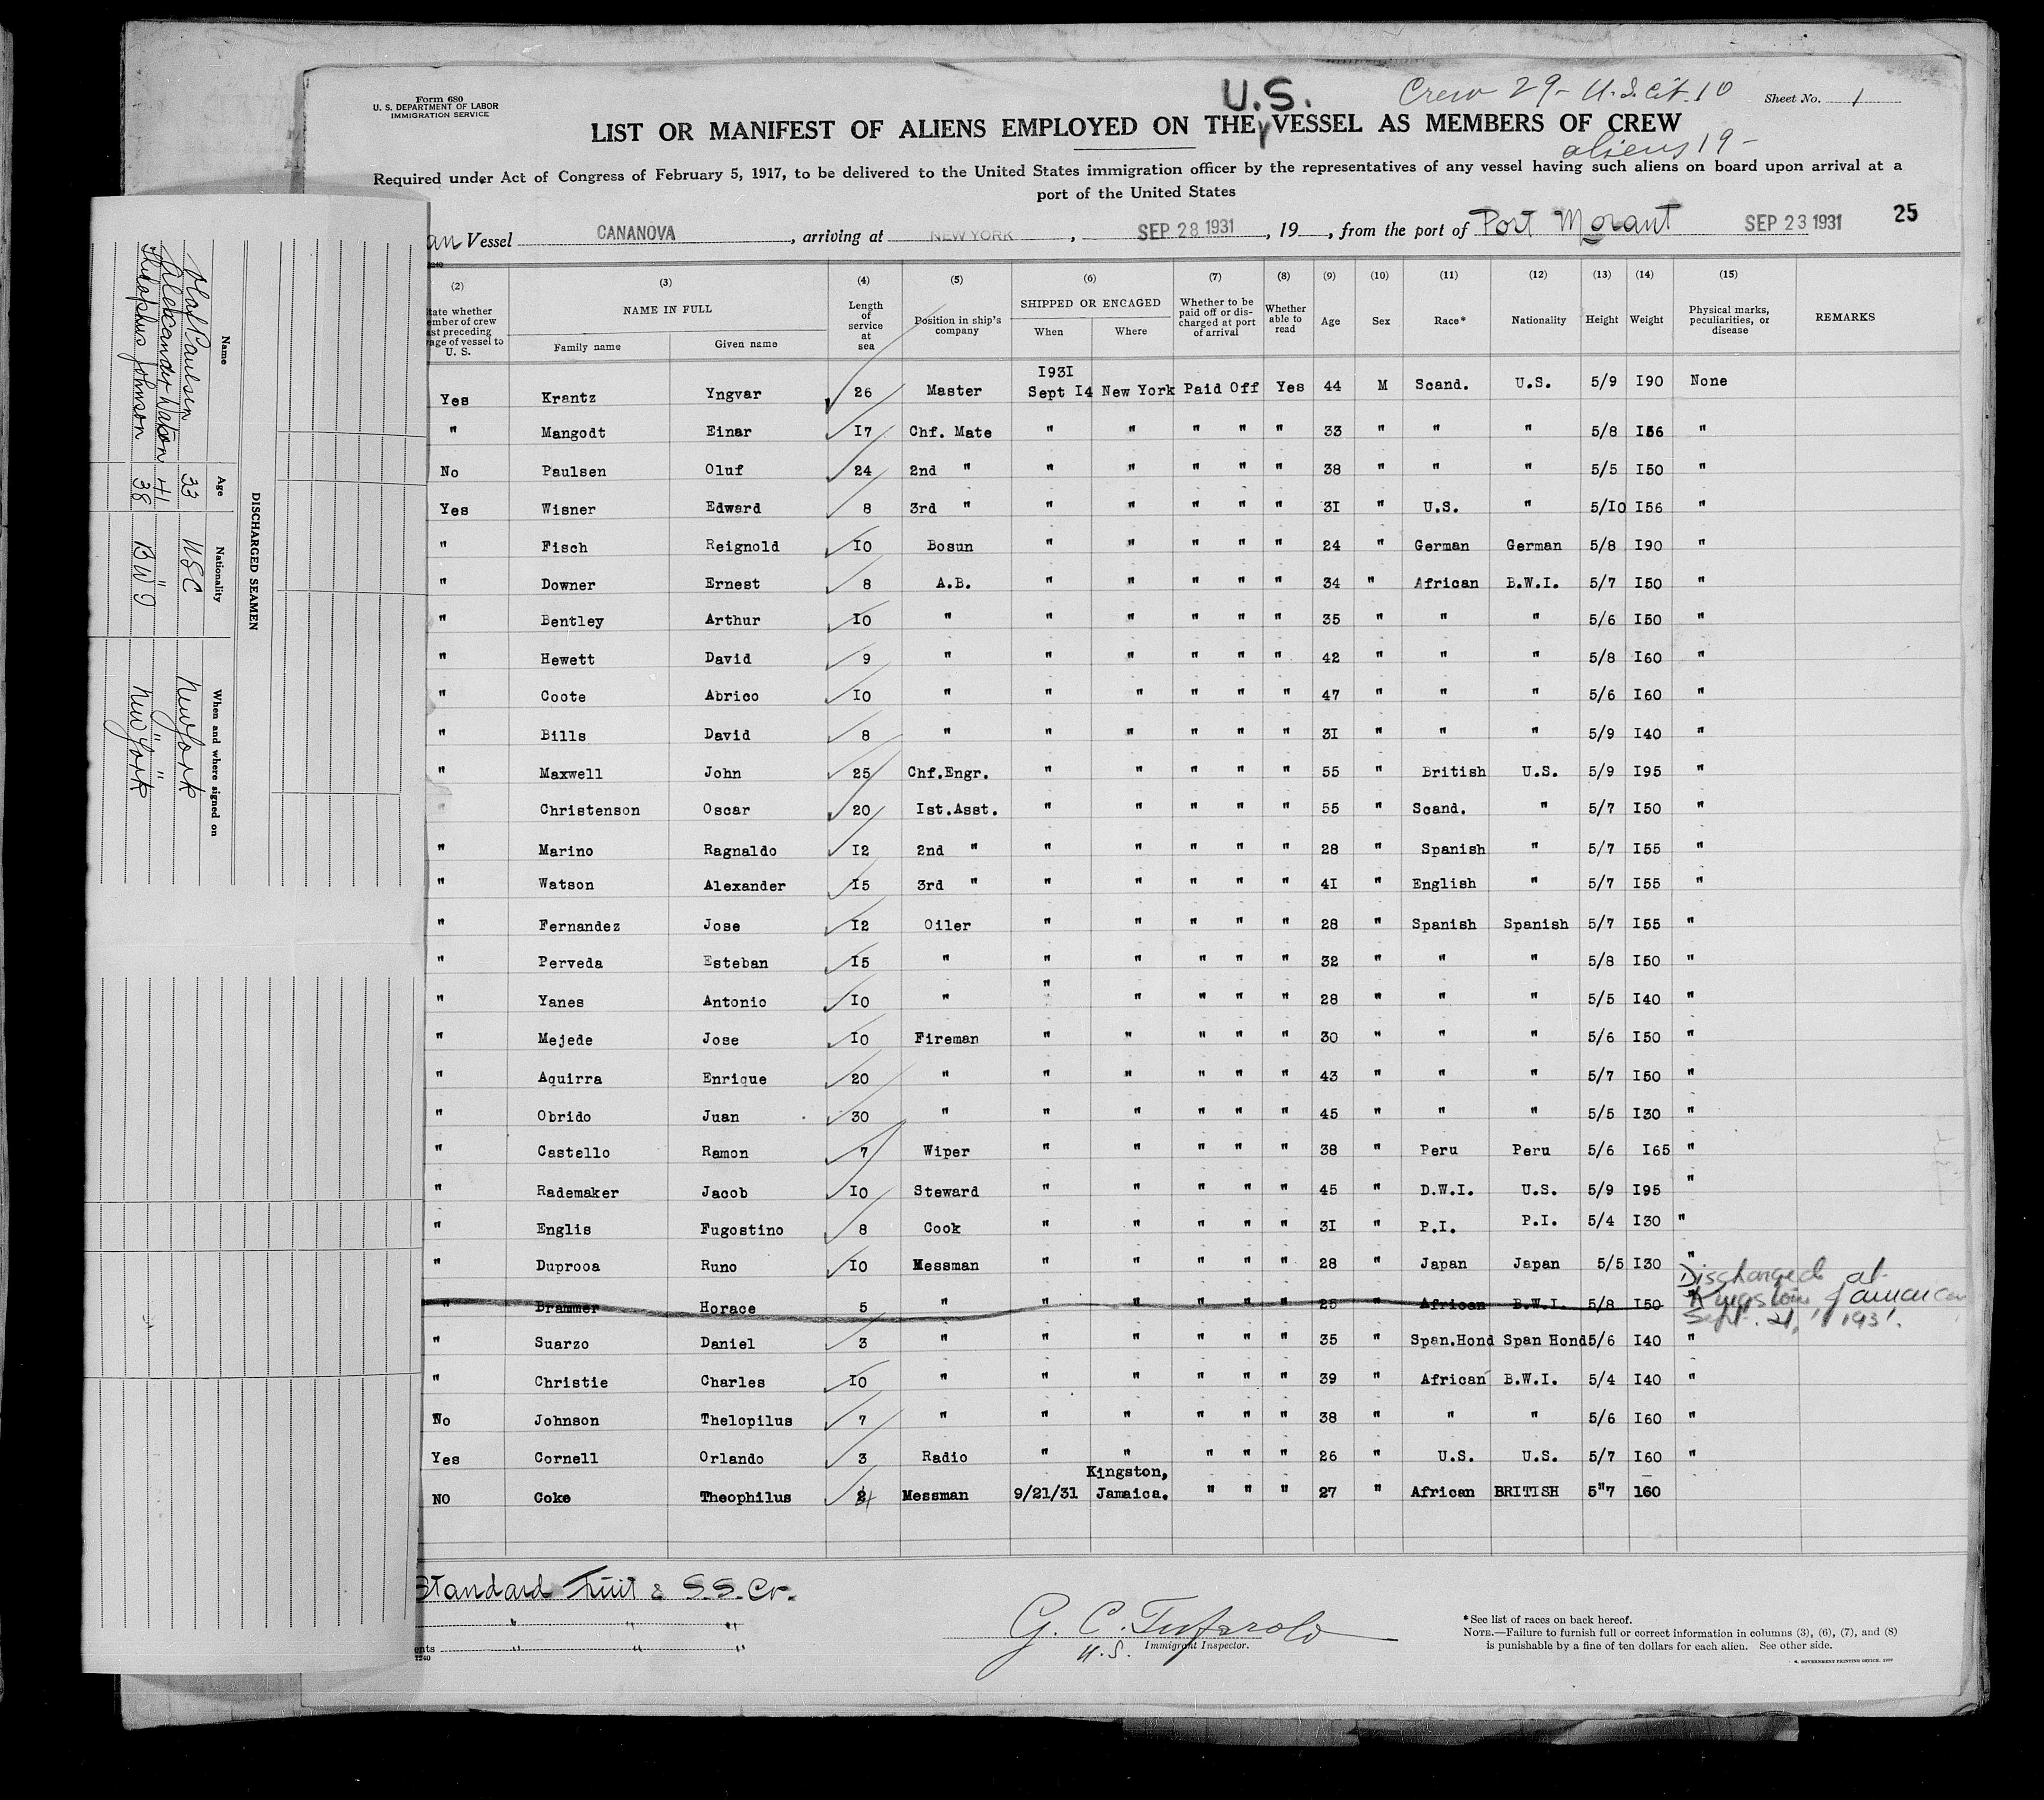 Form 680
U. S. DEPARTMENT OF LABOR
IMMIGRATION SERVICE
U.S.
Crew 29- U.S. Cit. 10
Sheet No. 1
LIST OR MANIFEST OF ALIENS EMPLOYED ON THE VESSEL AS MEMBERS OF CREW
aliens 19-
Required under Act of Congress of February 5, 1917, to be delivered to the United States immigration officer by the representatives of any vessel having such aliens on board upon arrival at a
port of the United States
an Vessel CANANOVA, arriving at NEW YORK, SEP 28 1931, 19, from the port of Port Morant SEP 23 1931 25
(2) (3) (4) (5) (6) (7) (8) (9) (10) (11) (12) (13) (14) (15)
tate whether
mber of crew
ast preceding
age of vessel to
U. S.
NAME IN FULL
Family name Given name
Length
of
service
at
sea
Position in ship's
company
SHIPPED OR ENGAGED
When Where
Whether to be
paid off or dis-
charged at port
of arrival
Whether
able to
read
Age Sex Race* Nationality Height Weight
Physical marks,
peculiarities, or
disease
REMARKS
1931
Yes Krantz Yngvar 26 Master Sept 14 New York Paid Off Yes 44 M Scand. U.S. 5/9 190 None
" Mangodt Einar 17 Chf. Mate " " " " " 33 " " " 5/8 156 "
No Paulsen Oluf 24 2nd " " " " " " 38 " " " 5/5 150 "
Yes Wisner Edward 8 3rd " " " " " " 31 " U.S. " 5/10 156 "
" Fisch Reignold 10 Bosun " " " " " 24 " German German 5/8 190 "
" Downer Ernest 8 A.B. " " " " " 34 " African B.W.I. 5/7 150 "
" Bentley Arthur 10 " " " " " " 35 " " " 5/6 150 "
" Hewett David 9 " " " " " " 42 " " " 5/8 160 "
" Coote Abrico 10 " " " " " " 47 " " " 5/6 160 "
" Bills David 8 " " " " " " 31 " " " 5/9 140 "
" Maxwell John 25 Chf.Engr. " " " " " 55 " British U.S. 5/9 195 "
Christenson Oscar 20 1st.Asst. " " " " " 55 " Scand. " 5/7 150 "
" Marino Ragnaldo 12 2nd " " " " " " 28 " Spanish " 5/7 155 "
" Watson Alexander 15 3rd " " " " " " 41 " English " 5/7 155 "
" Fernandez Jose 12 Oiler " " " " " 28 " Spanish Spanish 5/7 155 "
" Perveda Esteban 15 " " " " " " 32 " " " 5/8 150 "
" Yanes Antonio 10 " " " " " " 28 " " " 5/5 140 "
" Mejede Jose 10 Fireman " " " " " 30 " " " 5/6 150 "
" Aquirra Enrique 20 " " " " " " 43 " " " 5/7 150 "
" Obrido Juan 30 " " " " " " 45 " " " 5/5 130 "
" Castello Ramon 7 Wiper " " " " " 38 " Peru Peru 5/6 165 "
" Rademaker Jacob 10 Steward " " " " " 45 " D.W.I. U.S. 5/9 195 "
" Englis Fugostino 8 Cook " " " " " 31 " P.I. P.I. 5/4 130 "
" Duprooa Runo 10 Messman " " " " " 28 " Japan Japan 5/5 130 "
" Brammer Horace 5 " " " " " " 25 " African B.W.I. 5/8 150 "
Discharged at
Kingston Jamaica
Sept. 21, 1931.
" Suarzo Daniel 3 " " " " " " 35 " Span.Hond Span Hond 5/6 140 "
" Christie Charles 10 " " " " " " 39 " African B.W.I. 5/4 140 "
No Johnson Thelopilus 7 " " " " " " 38 " " " 5/6 160 "
Yes Cornell Orlando 3 Radio " " " " " 26 " U.S. U.S. 5/7 160 "
Kingston,
NO Coke Theophilus Messman 9/21/31 Jamaica. " " " 27 " African BRITISH 5"7 160
Standard Fruit & S.S. Co.
" " "
ents " " "
1240
G. C.
U.S. Immigrant Inspector.
*See list of races on back hereof.
NOTE.—Failure to furnish full or correct information in columns (3), (6), (7), and (8)
is punishable by a fine of ten dollars for each alien. See other side.
DISCHARGED SEAMEN
Name Age Nationality When and where signed on
Olaf Paulsen 33 USC New York
Alexander Watson 41 " "
Theophilus Johnson 38 B W I New York